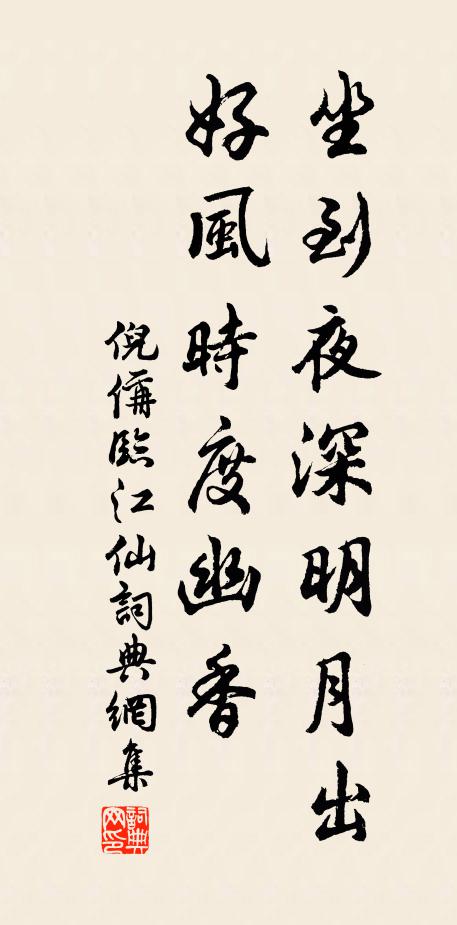 坐到夜深明月出
好風時度幽香
倪偁臨江仙詞典網集
詞典網印